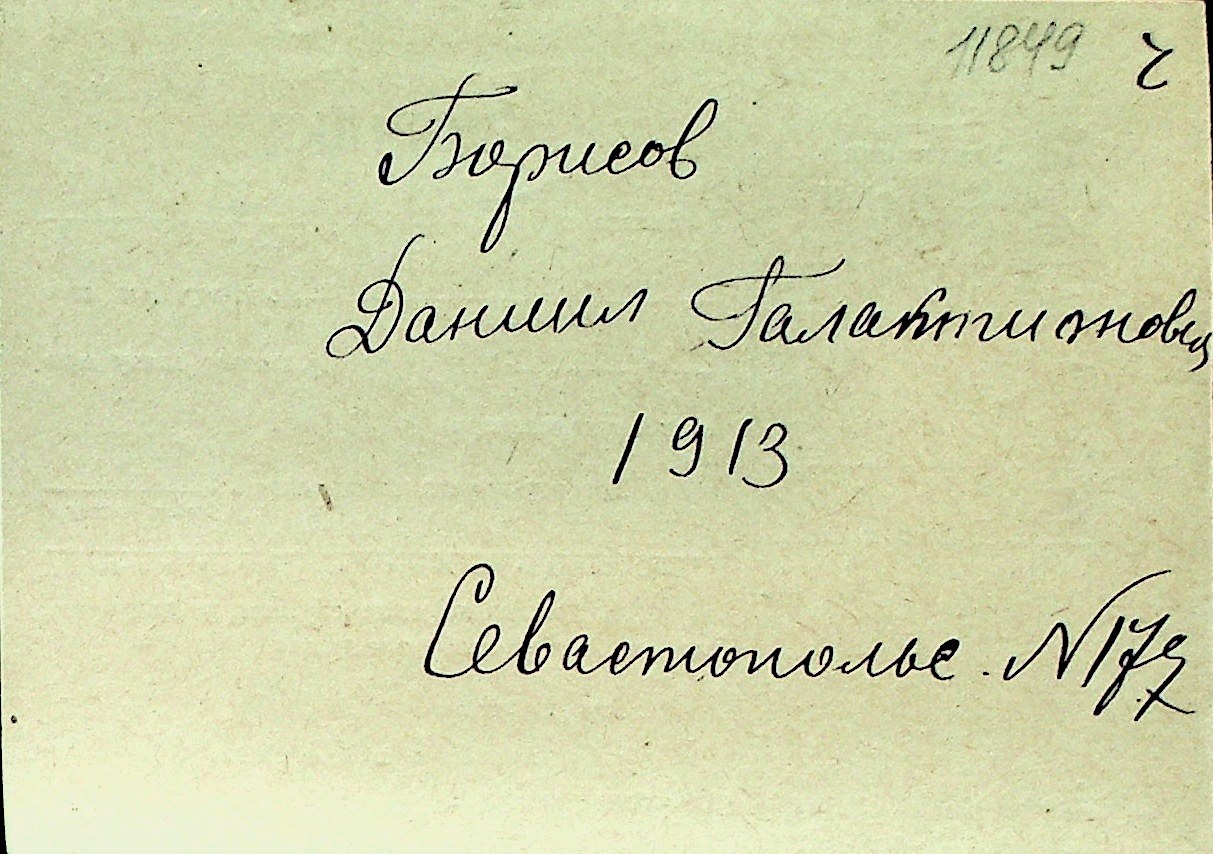 11849 г
Борисов
Даниил Галактионович
1913
Севастопольс. N